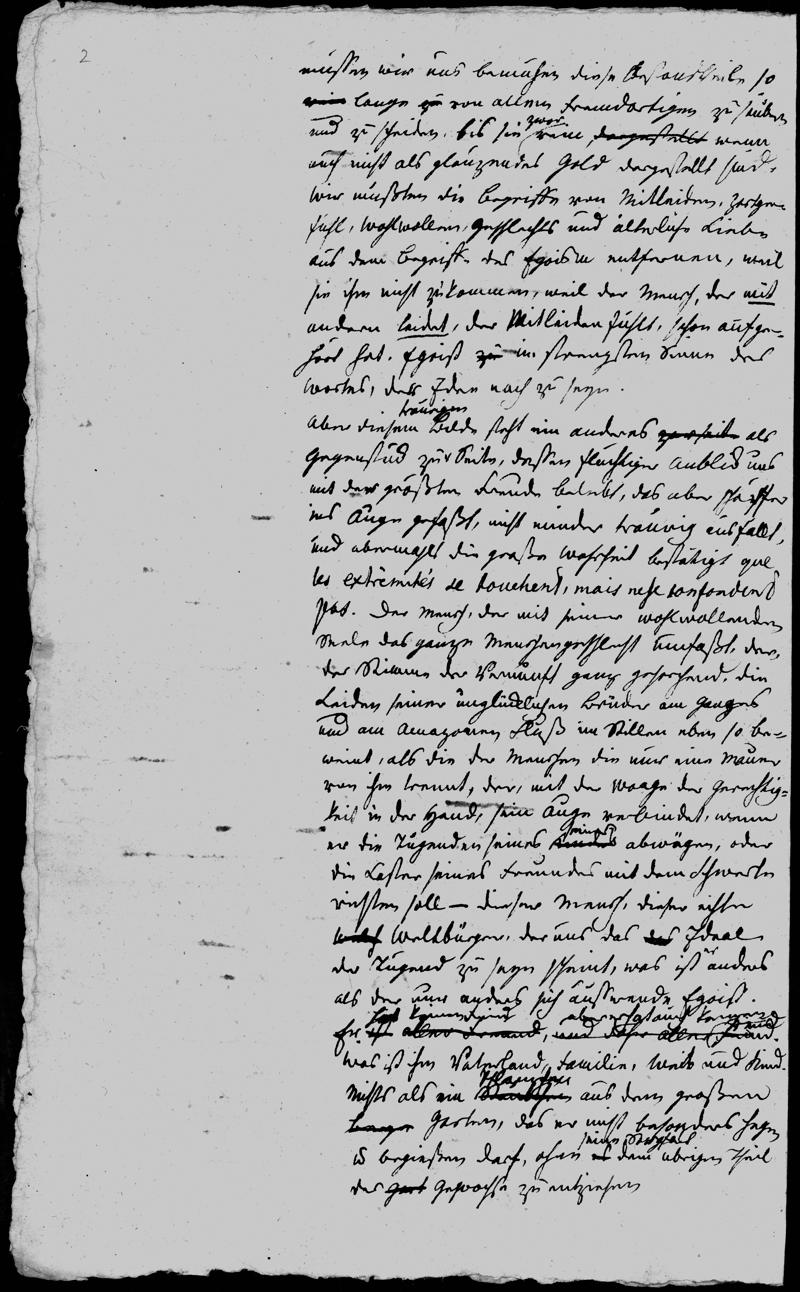 2
müssen wir uns bemühen diese Bestandtheile so
rein lange zu von allem Fremdartigen zu säubern
und zu scheiden, bis sie zwar rein, dargestellt wenn
auch nicht als glänzendes Gold dargestellt sind.
wir müßten die Begriffe von Mitleiden, Zartge-
fühl, Wohlwollen, Geschlechts und älterliche Liebe
aus dem Begriffe des Egoism entfernen, weil
sie ihm nicht zukommen, weil der Mensch, der mit
andern leidet, der Mitleiden fühlt, schon aufge-
hört hat, Egoist zu im strengsten Sinne des
Wortes, der Idee nach zu seyn.
Aber diesem traurigen Bilde steht ein anderes zur seite als
Gegenstück zur Seite, dessen flüchtiger Anblick uns
mit der größten Freude belebt, das aber schärffer
ins Auge gefaßt, nicht minder traurig ausfällt,
und abermahls die große Wahrheit bestätigt que
les extrêmités se touchent, mais ne se confondent
pas. Der Mensch, der mit seiner wohlwollenden
Seele das ganze Menschengeschlecht umfaßt, der,
der Stimme der Vernunft ganz gehorchend, die
Leiden seiner unglücklichen Brüder am Ganges
und am Amazonen Fluß im Stillen eben so be-
weint, als die der Menschen die nur eine Mauer
von ihm trennt, der, mit der Waage der Gerechtig-
keit in der Hand, sein Auge verbindet, wenn
er die Tugenden seines Feindes abwägen, oder
die Laster seines Freundes mit dem Schwerte
richten soll — dieser Mensch, dieser ächte
Weltbürger, der uns das das Ideal
der Tugend zu seyn scheint, was ist er anders
als der nur anders sich äussernde Egoist.
Er ist hat keinen Feind, aber er hat auch keinen Freund.
Was ist ihm Vaterland, Familie, Weib und Kind.
Nichts als ein Pflänzchen aus dem großen
Garten, das er nicht besonders hegen
u begießen darf, ohne seine Sorgfalt dem übrigen Theil
der Gewächse zu entziehen